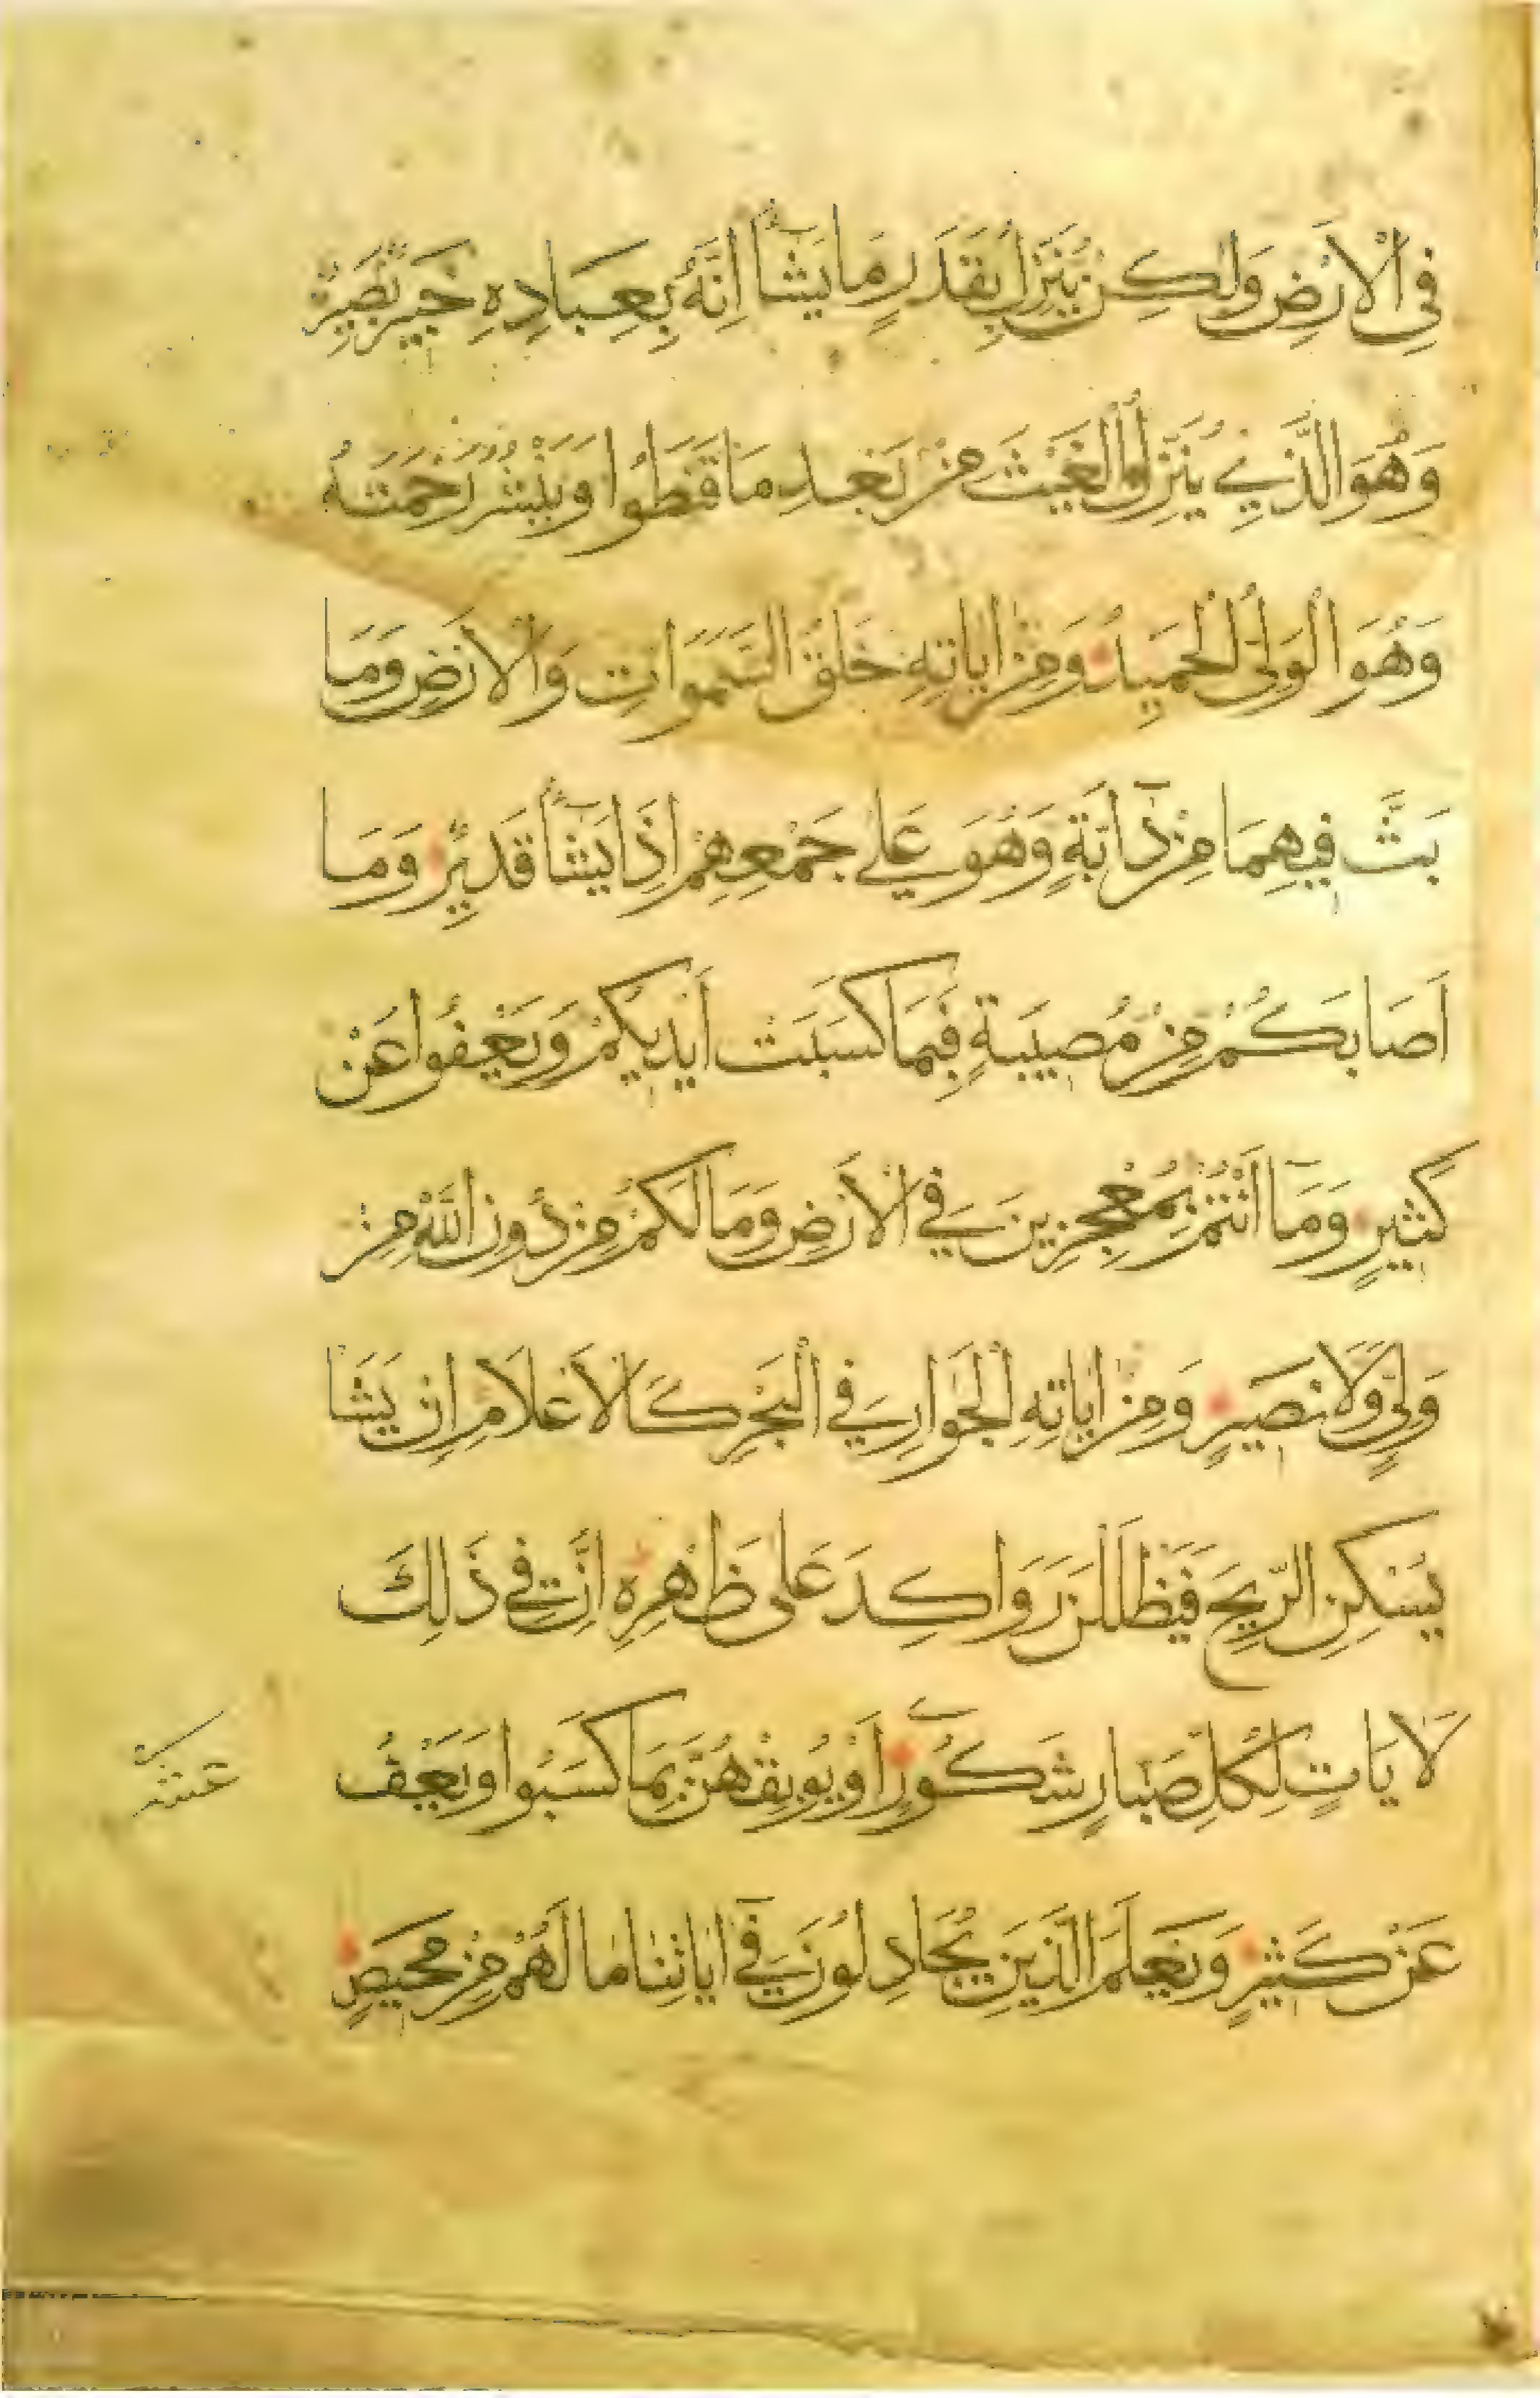 فِي الْأَرْضِ وَلٰكِنْ يُنَزِّلُ بِقَدَرٍ مَا يَشَآءُ اِنَّهُ بِعِبَادِهِ خَبِيرٌ بَصِيرٌ
وَهُوَ الَّذِي يُنَزِّلُ الْغَيْثَ مِنْ بَعْدِ مَا قَنَطُوا وَيَنْشُرُ رَحْمَتَهُ
وَهُوَ الْوَلِيُّ الْحَمِيدُ وَمِنْ اٰيَاتِهِ خَلْقُ السَّمَوَاتِ وَالْاَرْضِ وَمَا
بَثَّ فِيهِمَا مِنْ دَآبَّةٍ وَهُوَ عَلٰى جَمْعِهِمْ اِذَا يَشَآءُ قَدِيرٌ وَمَا
اَصَابَكُمْ مِنْ مُصِيبَةٍ فَبِمَا كَسَبَتْ اَيْدِيكُمْ وَيَعْفُوا عَنْ
كَثِيرٍ وَمَآ اَنْتُمْ بِمُعْجِزِينَ فِي الْاَرْضِ وَمَا لَكُمْ مِنْ دُونِ اللّٰهِ مِنْ
وَلِيٍّ وَلَا نَصِيرٍ وَمِنْ اٰيَاتِهِ الْجَوَارِي فِي الْبَحْرِ كَالْاَعْلَامِ اِنْ يَشَا
يُسْكِنِ الرِّيحَ فَيَظْلَلْنَ رَوَاكِدَ عَلٰى ظَهْرِهِ اِنَّ فِي ذٰلِكَ
لَاٰيَاتٍ لِكُلِّ صَبَّارٍ شَكُورٍ اَوْ يُوبِقْهُنَّ بِمَا كَسَبُوا وَيَعْفُ
عَنْ كَثِيرٍ وَيَعْلَمَ الَّذِينَ يُجَادِلُونَ فِي اٰيَاتِنَا مَا لَهُمْ مِنْ مَحِيصٍ